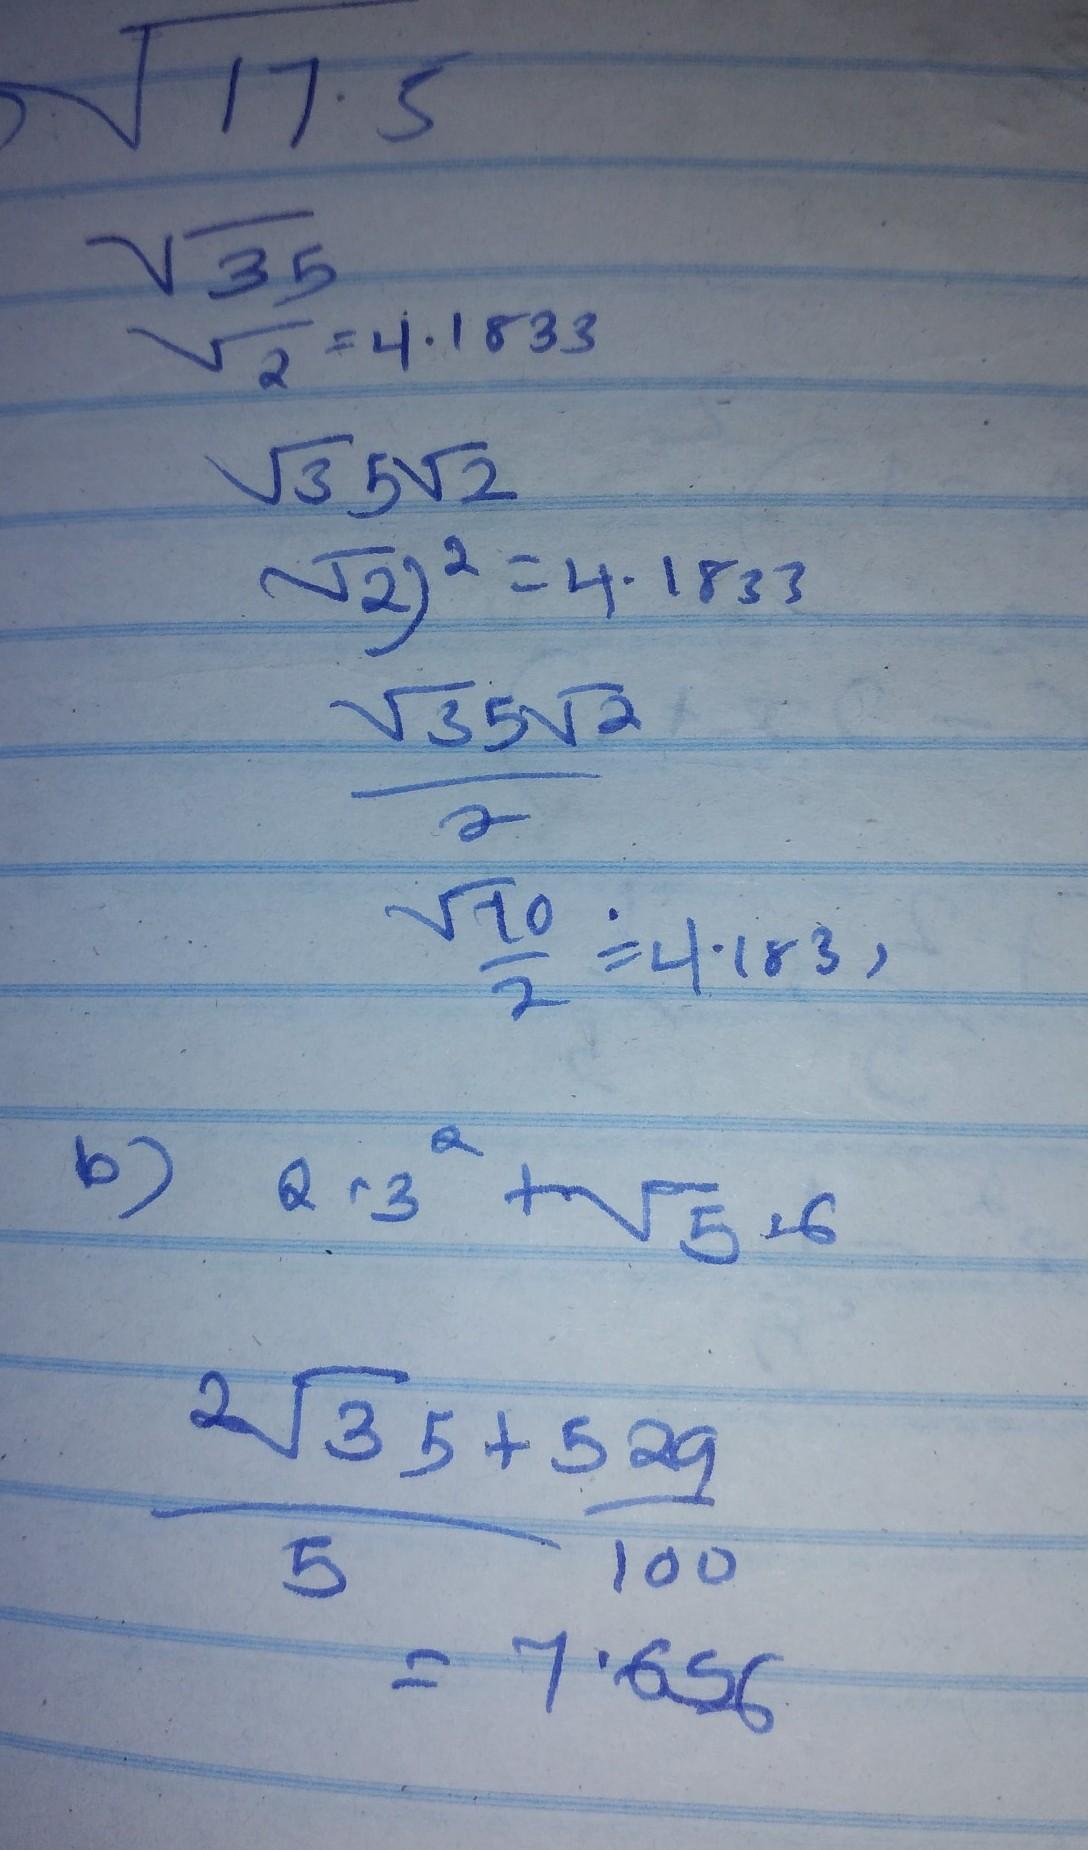 √17.5
√35
√2 = 4.1833
√35√2
√2)² = 4.1833
√35√2
2
√70
2 ≐ 4.183,
b) 2.3² + √5.6
2√35 + 529
5 100
= 7.656